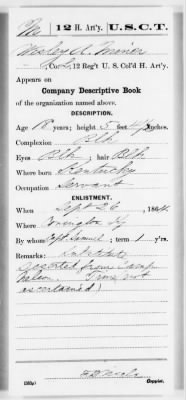 12 H. Art'y. U.S.C.T.
Wesley A. Turner
Co. 12 Reg't U. S. Col'd H. Art'y.
Appears on
Company Descriptive Book
of the organization named above.
DESCRIPTION.
Age 18 years; height 5 feet inches.
Complexion Blk
Eyes Blk ; hair Blk
Where born Kentucky
Occupation Servant
ENLISTMENT.
When Sept 26 , 1864.
Where Covington Ky
By whom Capt Samuel ; term 1 y'rs.
Remarks: Substitute
deserted from Camp
Nelson. Time not
ascertained)
(383g) Copyist.